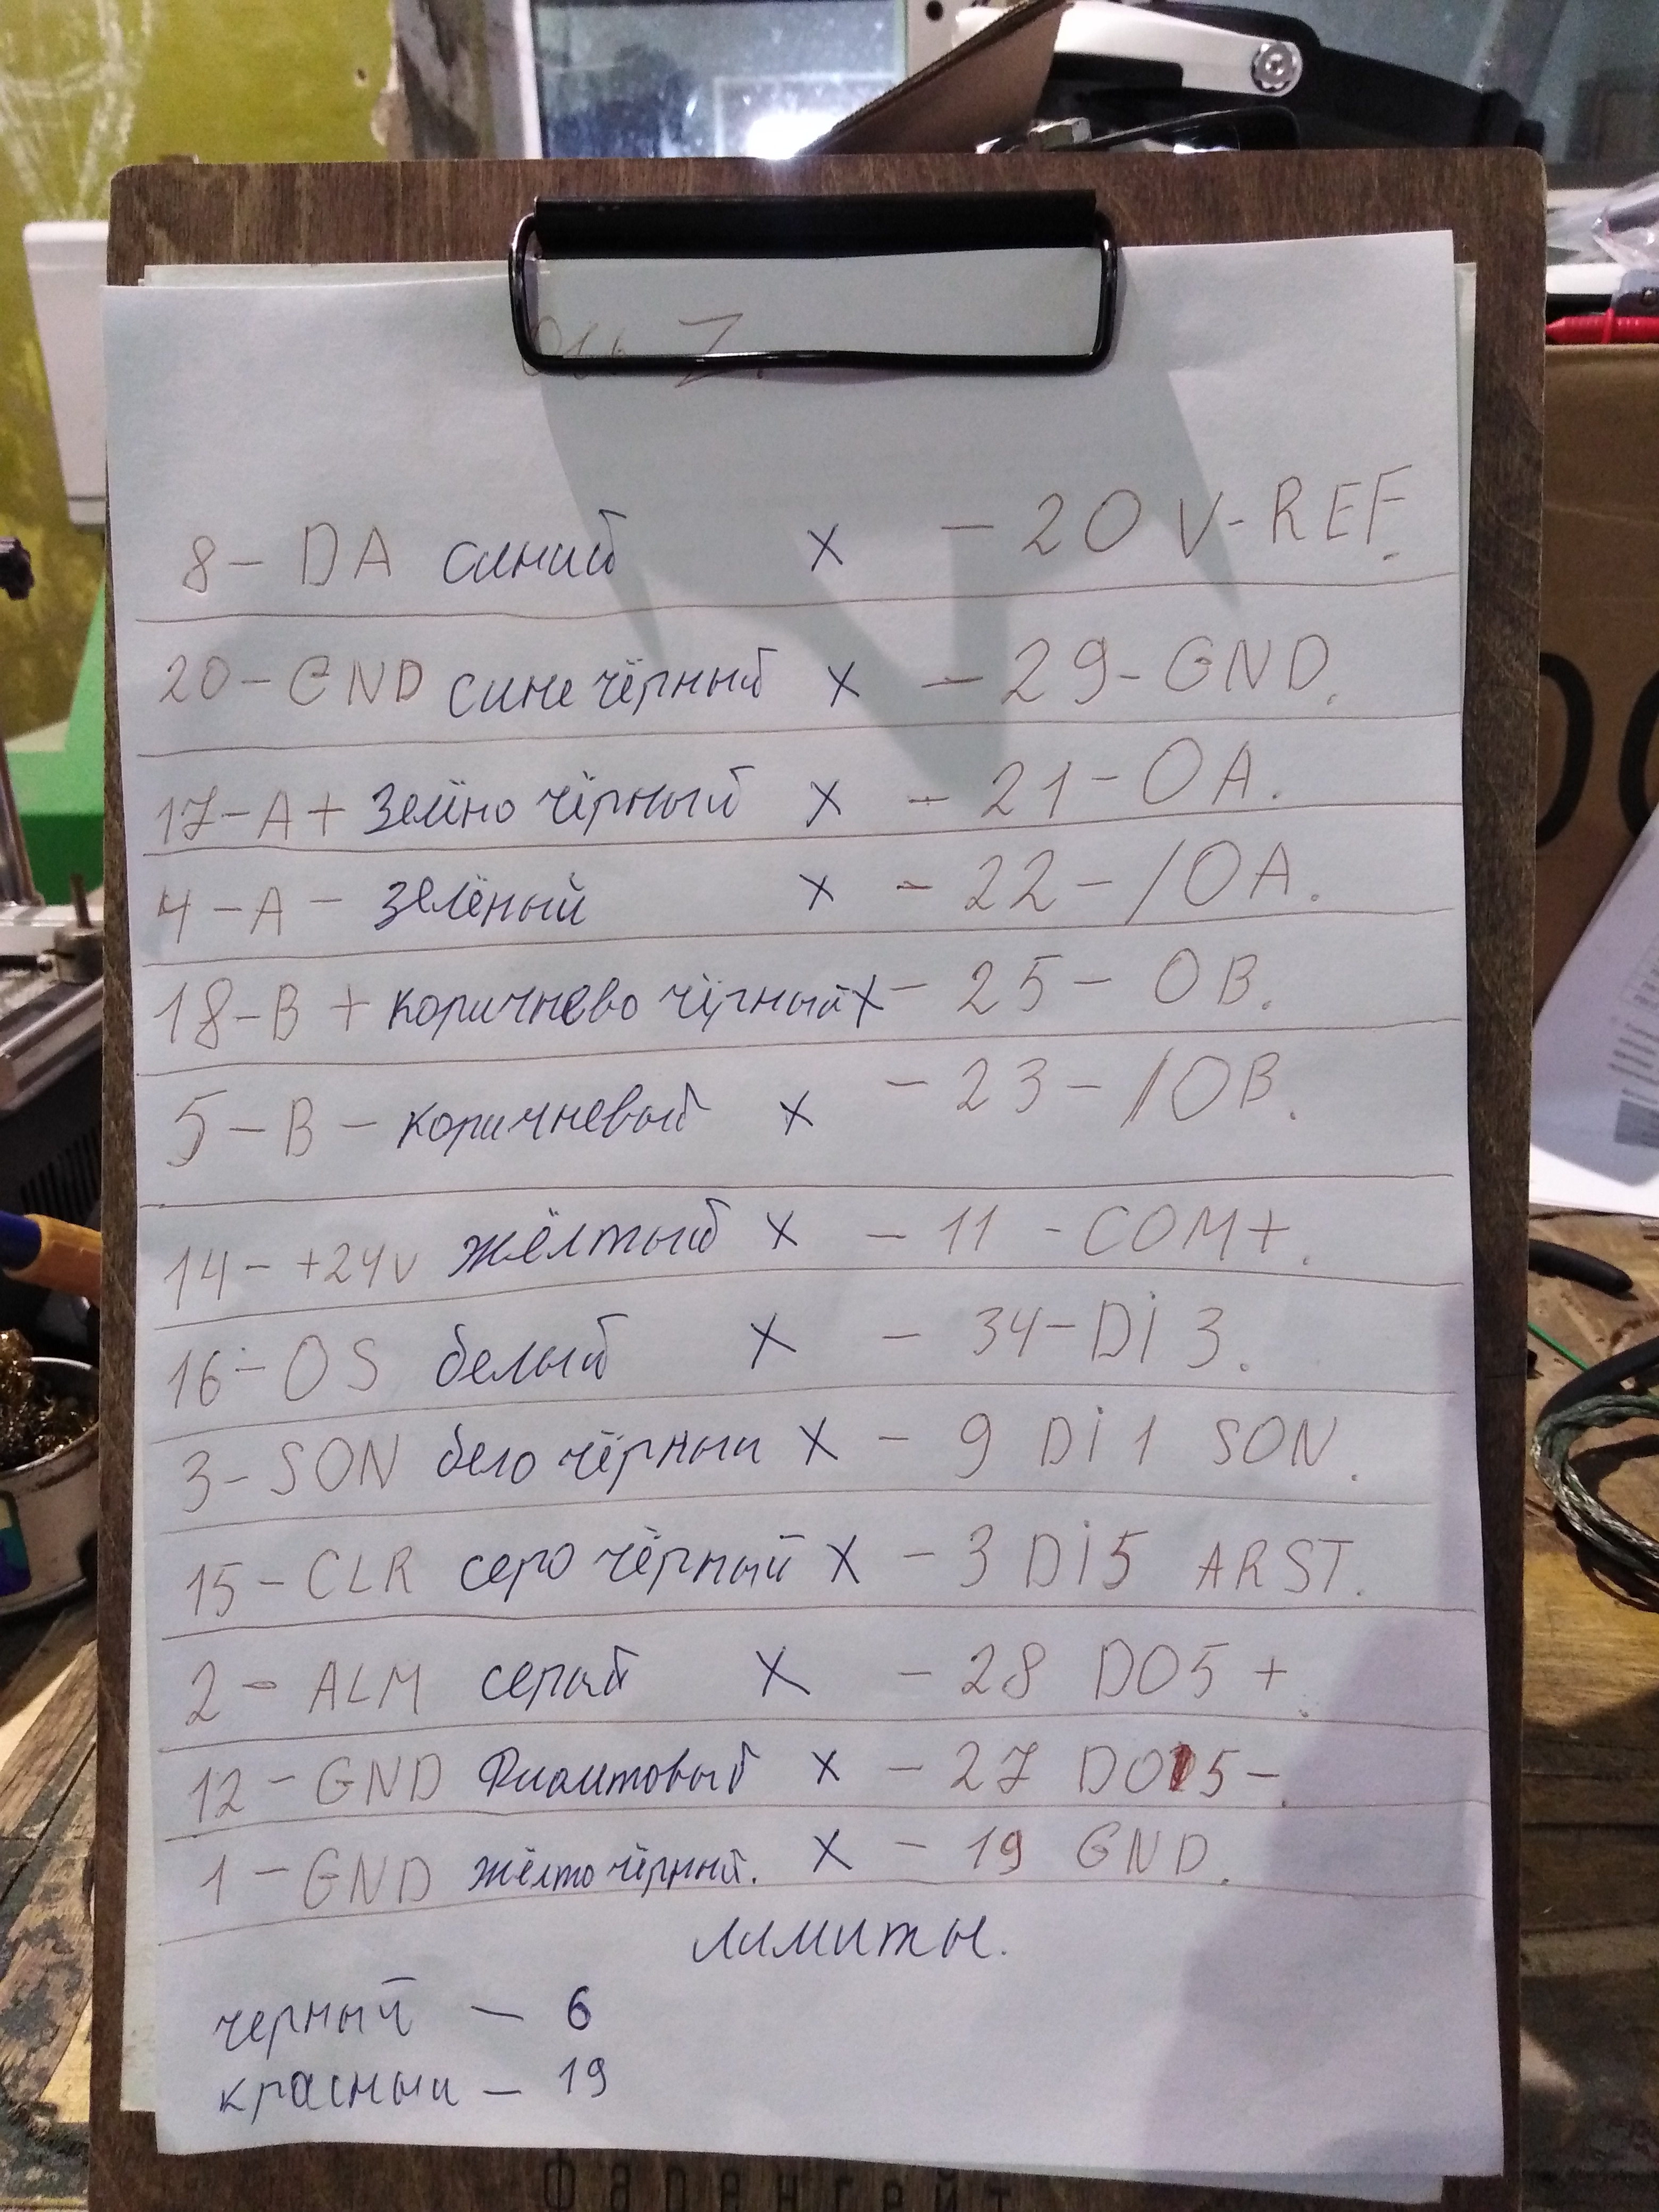 Ось Z.
8 - DA синий х - 20 V-REF.
20 - GND сине чёрный х - 29 - GND.
17 - A + зелёно чёрный х - 21 - OA.
4 - A - зелёный х - 22 - /OA.
18 - B + коричнево чёрный х - 25 - OB.
5 - B - коричневый х - 23 - /OB.
14 - +24v жёлтый х - 11 - COM+.
16 - OS белый х - 34 - Di 3.
3 - SON бело чёрный х - 9 Di 1 SON.
15 - CLR серо чёрный х - 3 Di5 ARST.
2 - ALM серый х - 28 DO5 +.
12 - GND Фиолтовый х - 27 DO5 -.
1 - GND жёлто чёрный. х - 19 GND.
лимиты.
черный - 6
красный - 19
Фаленгрейт